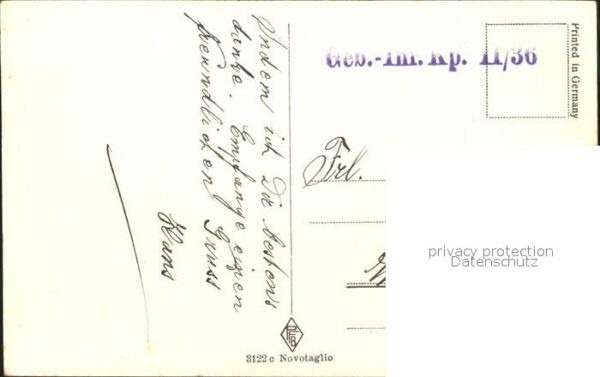 Indem ich Dir bestens
danke. Empfange einen
freundlichen Gruss
Hans
Geb.-Inf. Kp. II/36
Printed in Germany
Frl.
privacy protection
Datenschutz
3122 c Novotaglio